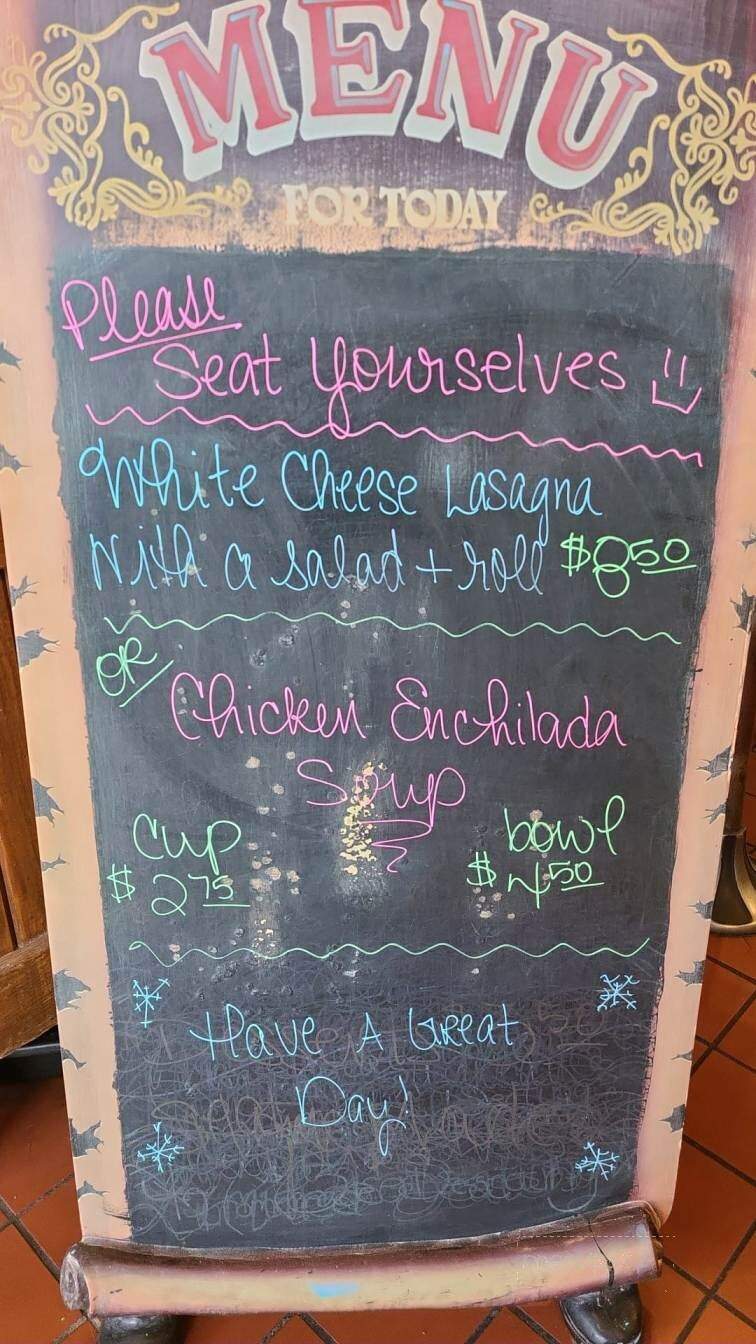 MENU
FOR TODAY
Please
Seat Yourselves
White Cheese Lasagna
With a salad + roll $8.50
OR
Chicken Enchilada
Soup
cup bowl
$2.75 $4.50
Have A Great
Day!